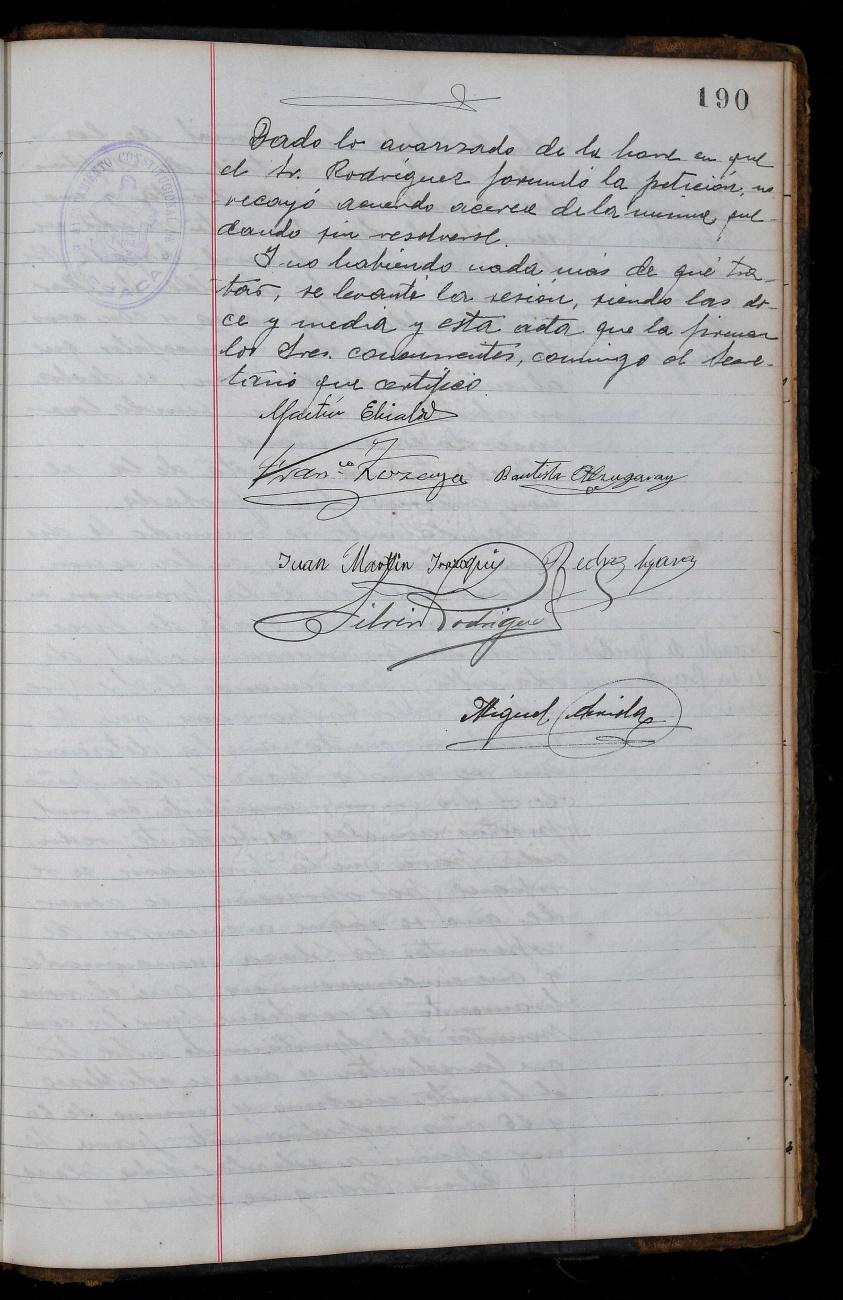 190
Dado lo avanzado de la hora en que
el Sr. Rodríguez formuló la petición, no
recayó acuerdo acerca de la misma, que-
dando sin resolverse.
Y no habiendo nada más de qué tra-
tar, se levantó la sesión, siendo las do-
ce y media y esta acta que la firman
los Sres. concurrentes, conmigo el Secre-
tario que certifico.
Martín
Franco Zozaya Bautista
Juan Martin
Silverio Rodriguez
Miguel Arriola
AYUNTAMIENTO CONSTITUCIONAL